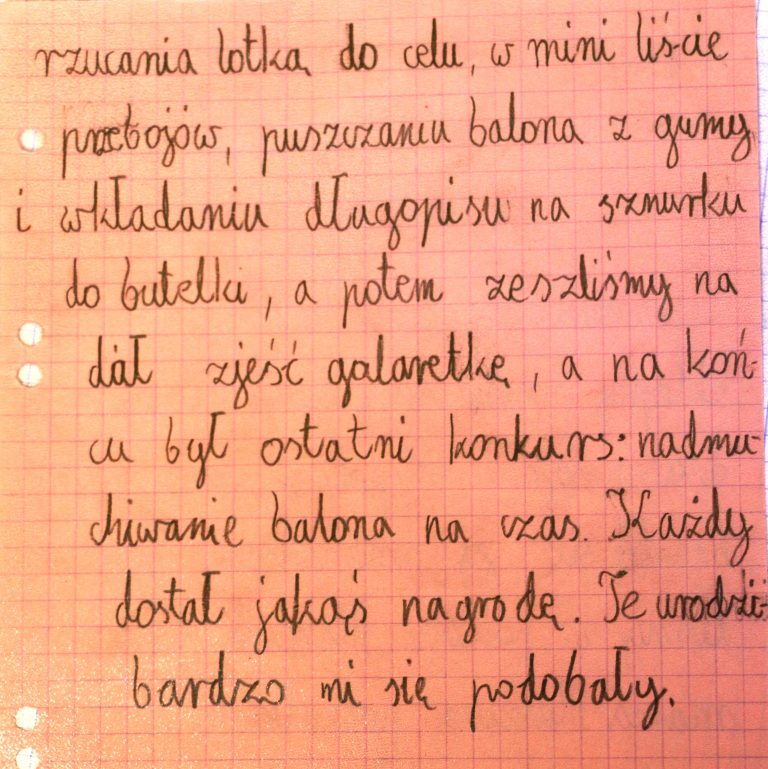 rzucania lotką do celu, w mini liście
przebojów, puszczaniu balona z gumy
i wkładaniu długopisu na sznurku
do butelki, a potem zeszliśmy na
dół zjeść galaretkę, a na koń-
cu był ostatni konkurs: nadmu-
chiwanie balona na czas. Każdy
dostał jakąś nagrodę. Te urodzi-
bardzo mi się podobały.